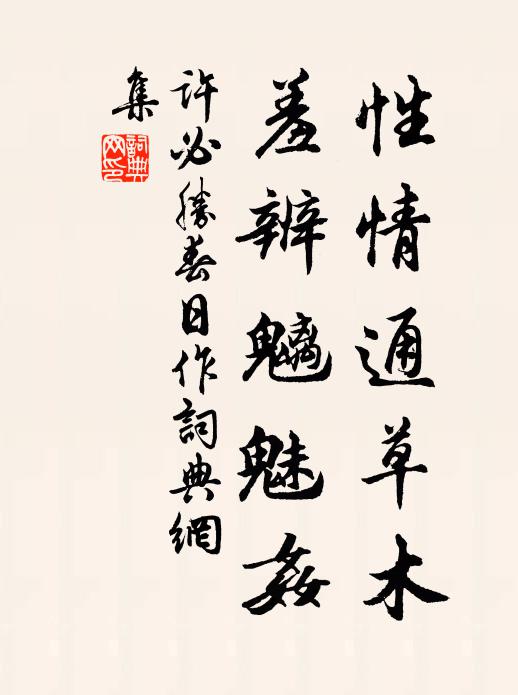 性情通草木
羞辨魑魅姦
許必勝春日作詞典網
集
詞典
网印